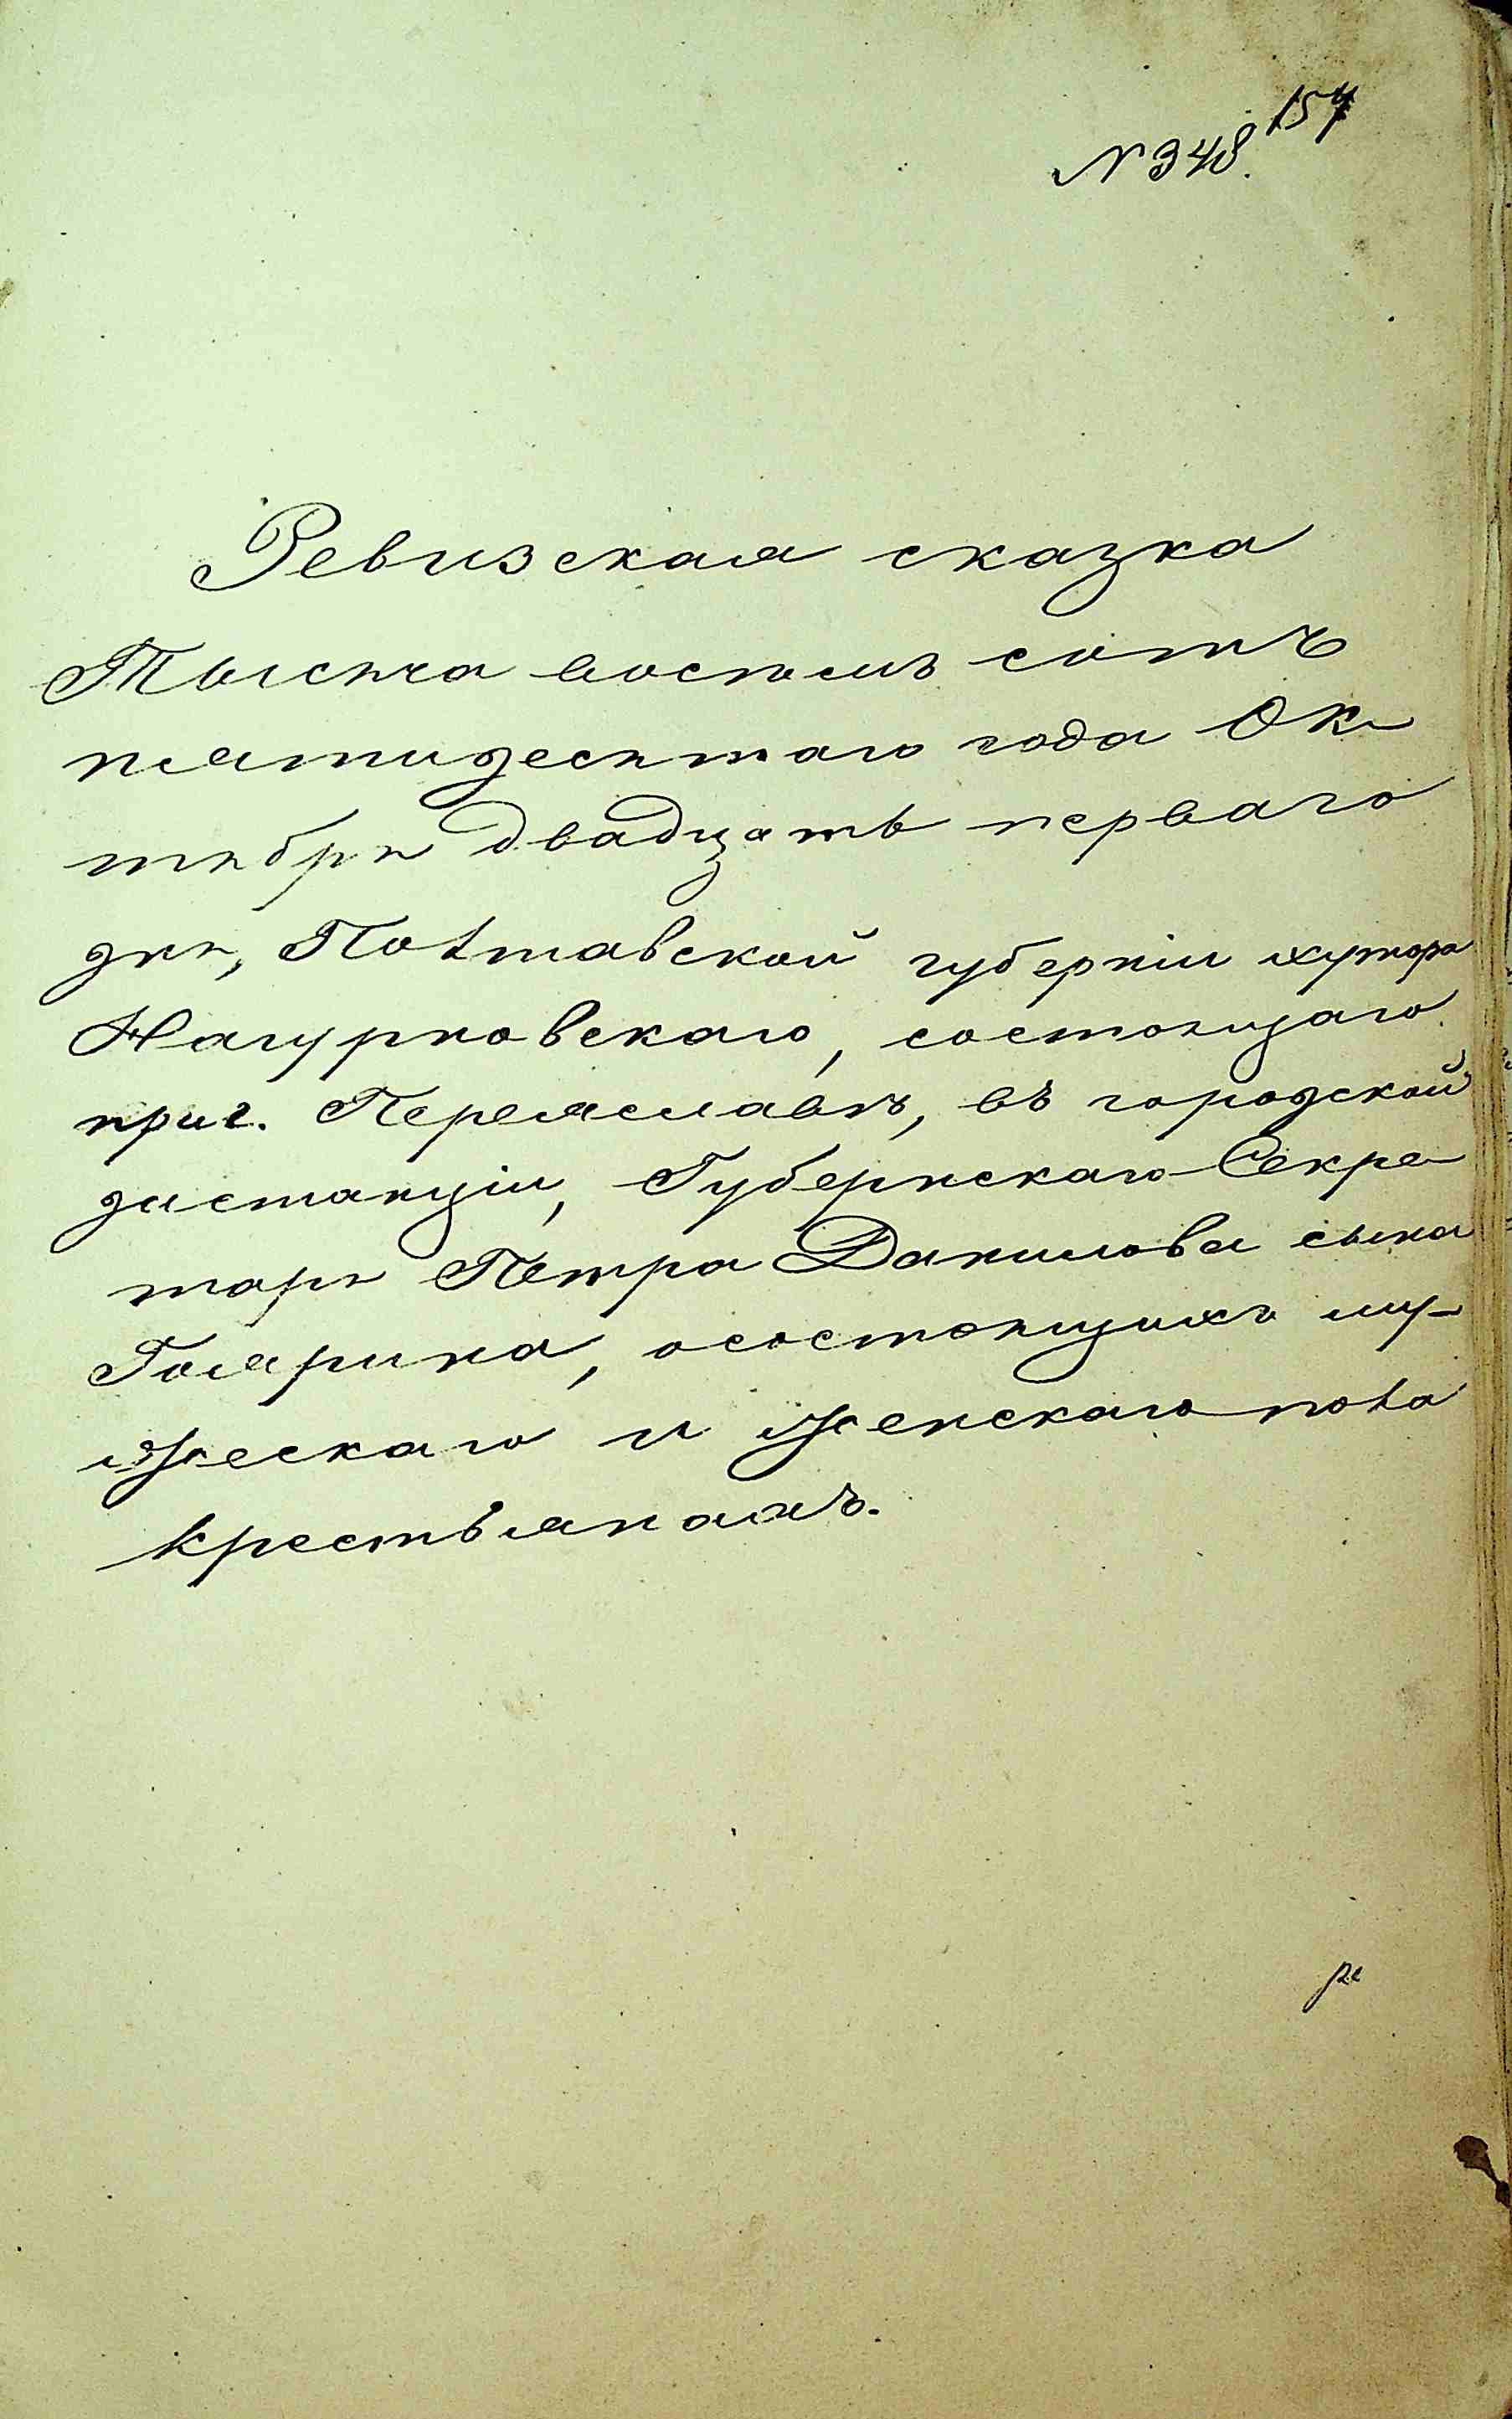 157
N 348.
Ревизская сказка
Тысяча восемь сотъ
пятидесятаго года Ок-
тября двадцать перваго
дня, Полтавской губерніи хутора
состоящаго
при г. Переяславѣ, въ городской
дистанціи, Губернскаго Секре-
таря Петра Данилова сына
осостоящихъ му-
жескаго и женскаго пола
крестьянахъ.
ре